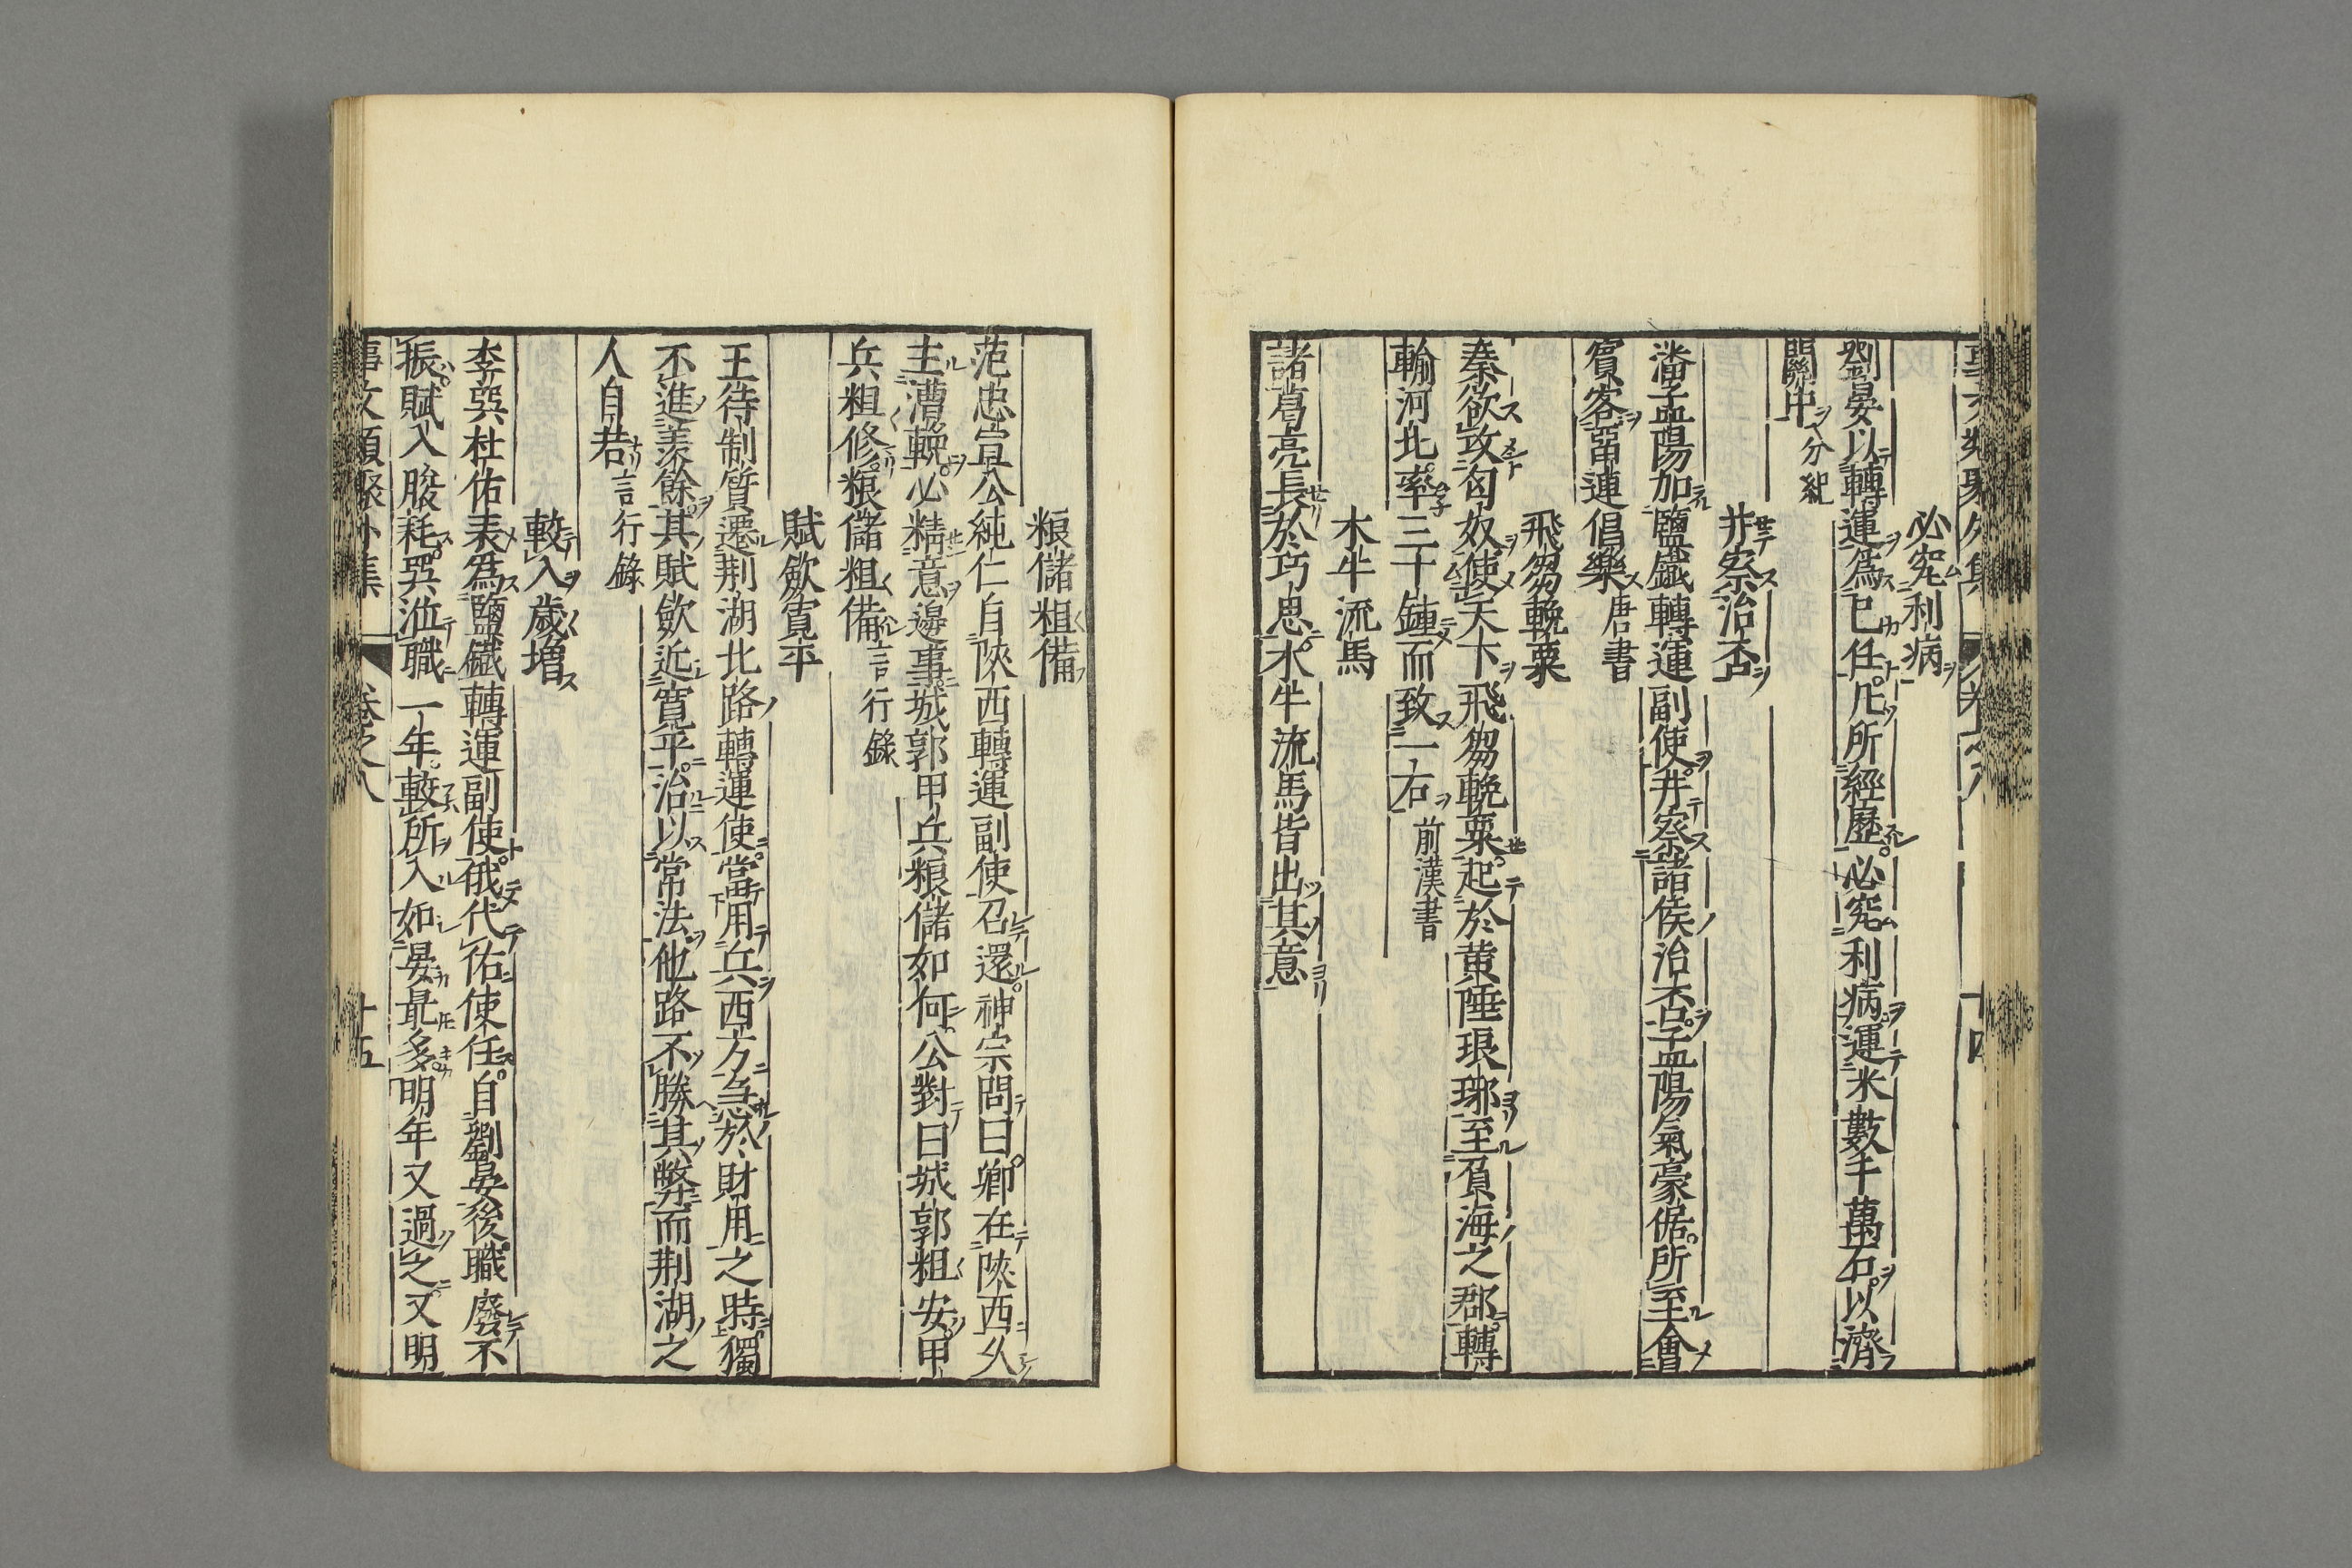 必究利病
劉晏以轉運爲已任凡所經歷必究利病運米數千萬石以濟
關中 分紀
并察治否
潘孟陽加鹽鐵轉運副使并察諸侯治否孟陽氣豪倨所至會
賓客留連倡樂 唐書
飛芻輓粟
秦欲攻匈奴使天下飛芻輓粟起於黄陲琅琊至負海之郡轉
輸河北率三十鍾而致一石 前漢書
木牛流馬
諸葛亮長於巧思木牛流馬皆出其意
粮儲粗備
范忠宣公純仁自陝西轉運副使召還神宗問曰卿在陝西久
主漕輓必精意邊事城郭甲兵粮儲如何公對曰城郭粗安甲
兵粗修粮儲粗備 言行錄
賦歛寛平
王待制質遷荆湖北路轉運使當用兵西方急於財用之時獨
不進羨餘其賦歛近寛平治以常法他路不勝其弊而荆湖之
人自若 言行錄
較入歲増
李巽杜佑表爲鹽鐵轉運副使俄代佑使任自劉晏後職廢不
振賦入朘耗巽涖職一年較所入如晏最多明年又過之又明
事文類聚外集 卷之八 十五